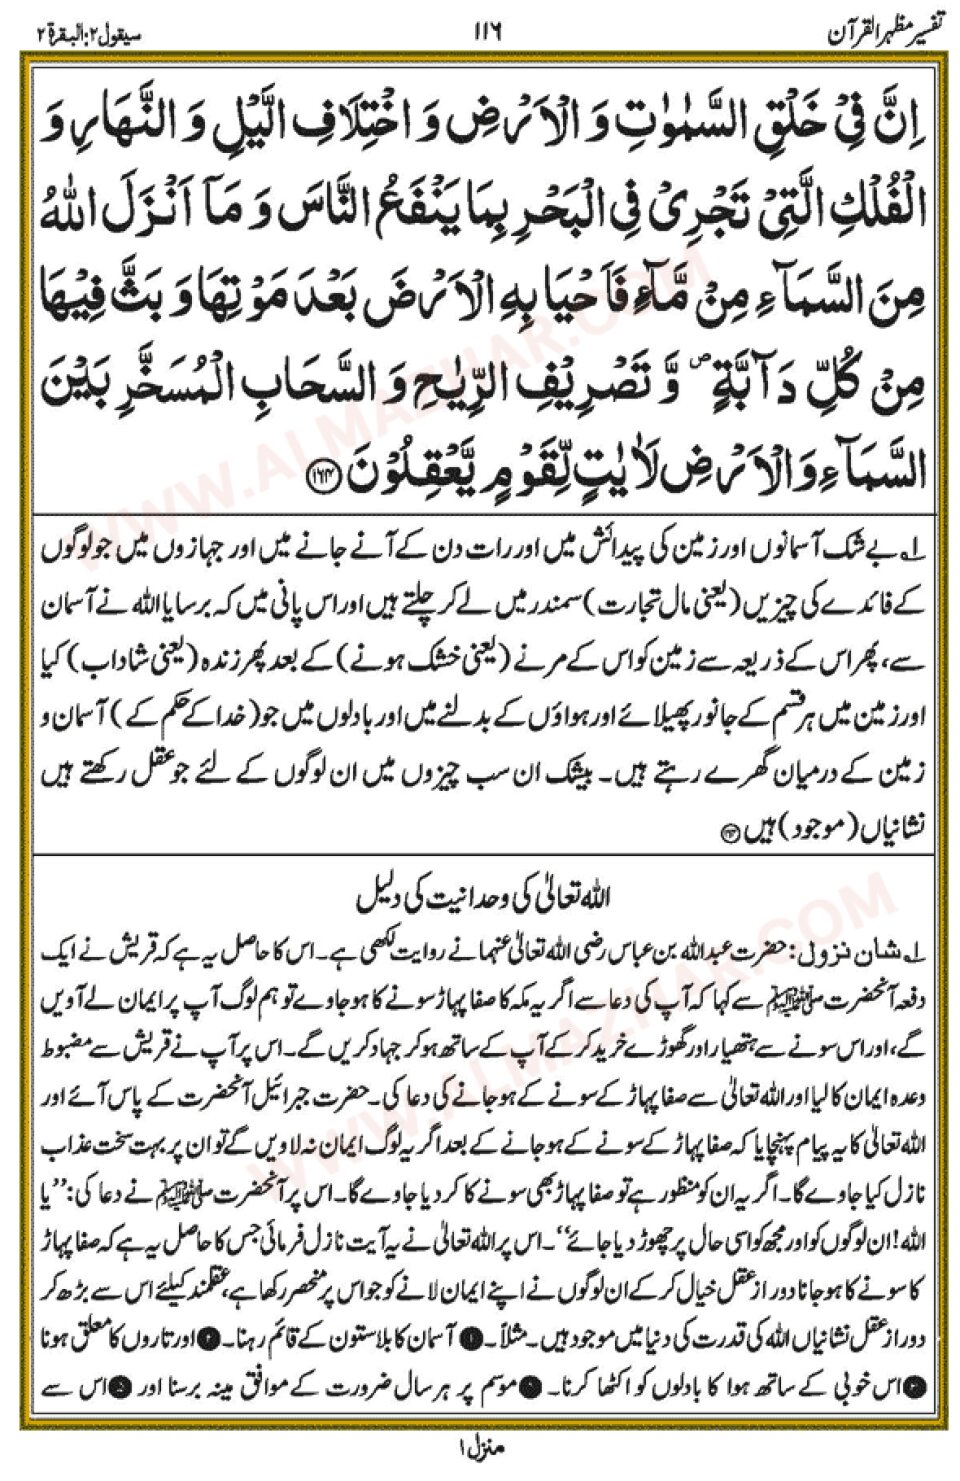 تفسیر مظہر القرآن
۱۱۶
سیقول ۲: البقرة ۲
اِنَّ فِیْ خَلْقِ السَّمٰوٰتِ وَ الْاَرْضِ وَ اخْتِلَافِ الَّیْلِ وَ النَّهَارِ وَ
الْفُلْكِ الَّتِیْ تَجْرِیْ فِی الْبَحْرِ بِمَا یَنْفَعُ النَّاسَ وَ مَاۤ اَنْزَلَ اللّٰهُ
مِنَ السَّمَآءِ مِنْ مَّآءٍ فَاَحْیَا بِهِ الْاَرْضَ بَعْدَ مَوْتِهَا وَ بَثَّ فِیْهَا
مِنْ كُلِّ دَآبَّةٍ ۪ وَّ تَصْرِیْفِ الرِّیٰحِ وَ السَّحَابِ الْمُسَخَّرِ بَیْنَ
السَّمَآءِ وَ الْاَرْضِ لَاٰیٰتٍ لِّقَوْمٍ یَّعْقِلُوْنَ ﴿۱۶۴﴾
۱؎ بے شک آسمانوں اور زمین کی پیدائش میں اور رات دن کے آنے جانے میں اور جہازوں میں جو لوگوں
کے فائدے کی چیزیں (یعنی مال تجارت) سمندر میں لے کر چلتے ہیں اور اس پانی میں کہ برسایا اللہ نے آسمان
سے، پھر اس کے ذریعہ سے زمین کو اس کے مرنے (یعنی خشک ہونے) کے بعد پھر زندہ (یعنی شاداب) کیا
اور زمین میں ہر قسم کے جانور پھیلائے اور ہواؤں کے بدلنے میں اور بادلوں میں جو (خدا کے حکم کے) آسمان و
زمین کے درمیان گھرے رہتے ہیں۔ بیشک ان سب چیزوں میں ان لوگوں کے لئے جو عقل رکھتے ہیں
نشانیاں (موجود) ہیں ﴿۱۶۴﴾
اللہ تعالیٰ کی وحدانیت کی دلیل
۱؎ شان نزول: حضرت عبداللہ بن عباس رضی اللہ تعالیٰ عنہما نے روایت لکھی ہے۔ اس کا حاصل یہ ہے کہ قریش نے ایک
دفعہ آنحضرت ﷺ سے کہا کہ آپ کی دعا سے اگر یہ مکہ کا صفا پہاڑ سونے کا ہو جاوے تو ہم لوگ آپ پر ایمان لے آویں
گے، اور اس سونے سے ہتھیار اور گھوڑے خرید کر کے آپ کے ساتھ ہو کر جہاد کریں گے۔ اس پر آپ نے قریش سے مضبوط
وعدہ ایمان کا لیا اور اللہ تعالیٰ سے صفا پہاڑ کے سونے کے ہو جانے کی دعا کی۔ حضرت جبرائیل آنحضرت کے پاس آئے اور
اللہ تعالیٰ کا یہ پیام پہنچایا کہ صفا پہاڑ کے سونے کے ہو جانے کے بعد اگر یہ لوگ ایمان نہ لاویں گے تو ان پر بہت سخت عذاب
نازل کیا جاوے گا۔ اگر یہ ان کو منظور ہے تو صفا پہاڑ بھی سونے کا کر دیا جاوے گا۔ اس پر آنحضرت ﷺ نے دعا کی: ’’یا
اللہ! ان لوگوں کو اور مجھ کو اسی حال پر چھوڑ دیا جائے‘‘۔ اس پر اللہ تعالیٰ نے یہ آیت نازل فرمائی جس کا حاصل یہ ہے کہ صفا پہاڑ
کا سونے کا ہو جانا دور از عقل خیال کر کے ان لوگوں نے اپنے ایمان لانے کو جو اس پر منحصر رکھا ہے، عقلمند کیلئے اس سے بڑھ کر
دور از عقل نشانیاں اللہ کی قدرت کی دنیا میں موجود ہیں۔ مثلاً۔ ❶ آسمان کا بلا ستون کے قائم رہنا۔ ❷ اور تاروں کا معلق ہونا
❸ اس خوبی کے ساتھ ہوا کا بادلوں کو اکٹھا کرنا۔ ❹ موسم پر ہر سال ضرورت کے موافق مینہ برسنا اور ❺ اس سے
منزل ۱
WWW.ALMAZHAR.COM
WWW.ALMAZHAR.COM